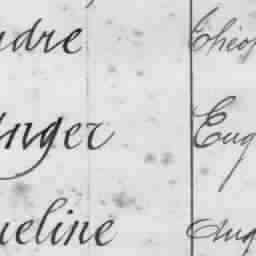 udre Théop
nger Eug
ueline Aug